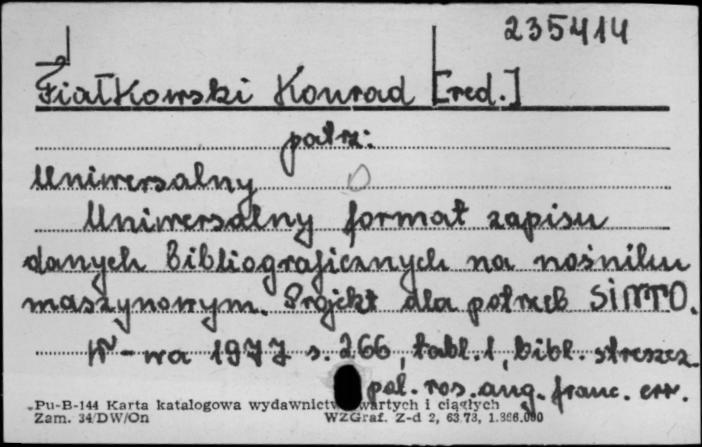 235414
Fiałkowski Konrad [red.]
patrz:
Uniwersalny
Uniwersalny format zapisu
danych bibliograficznych na nośniku
maszynowym. Projekt dla potrzeb SINTO.
W-wa 1977 s. 266, tabl. 1, bibl. streszcz.
pol. ros. ang. franc. err.
Pu-B-144 Karta katalogowa wydawnictw zwartych i ciągłych
Zam. 34/DW/On WZGraf. Z-d 2, 63.73, 1.366.000